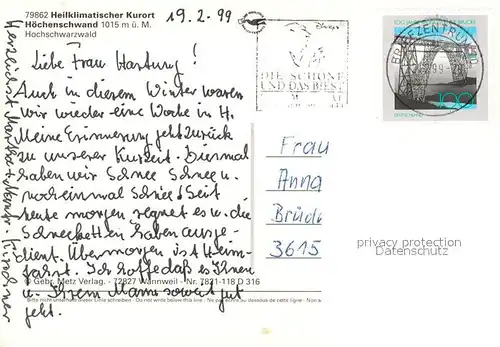 79862 Heilklimatischer Kurort
Höchenschwand 1015 m ü. M.
Hochschwarzwald
19.2.99
Liebe Frau Hartung!
Auch in diesem Winter waren
wir wieder eine Woche in H.
Meine Erinnerung geht zurück
zu unserer Kurzeit. Diesmal
haben wir Schnee Schnee u.
nocheinmal Schnee! Seit
heute morgen regnet es u. die
Schneeketten haben ausge-
dient. Übermorgen ist Heim-
fahrt. Ich hoffe daß es Ihnen
u. Ihrem Mann soweit gut
geht.
Herzlichst
© Gebr. Metz Verlag. - 72827 Wannweil - Nr. 7831-118 D 316
Bitte nicht unterhalb dieser Linie schreiben - Do not write below this line - Ne pas écrire au dessous de cette ligne - Non
Disney's
DIE SCHÖNE
UND DAS BIEST
BRIEFZENTRUM
100
Frau
Anna
Brück
3615
privacy protection
Datenschutz